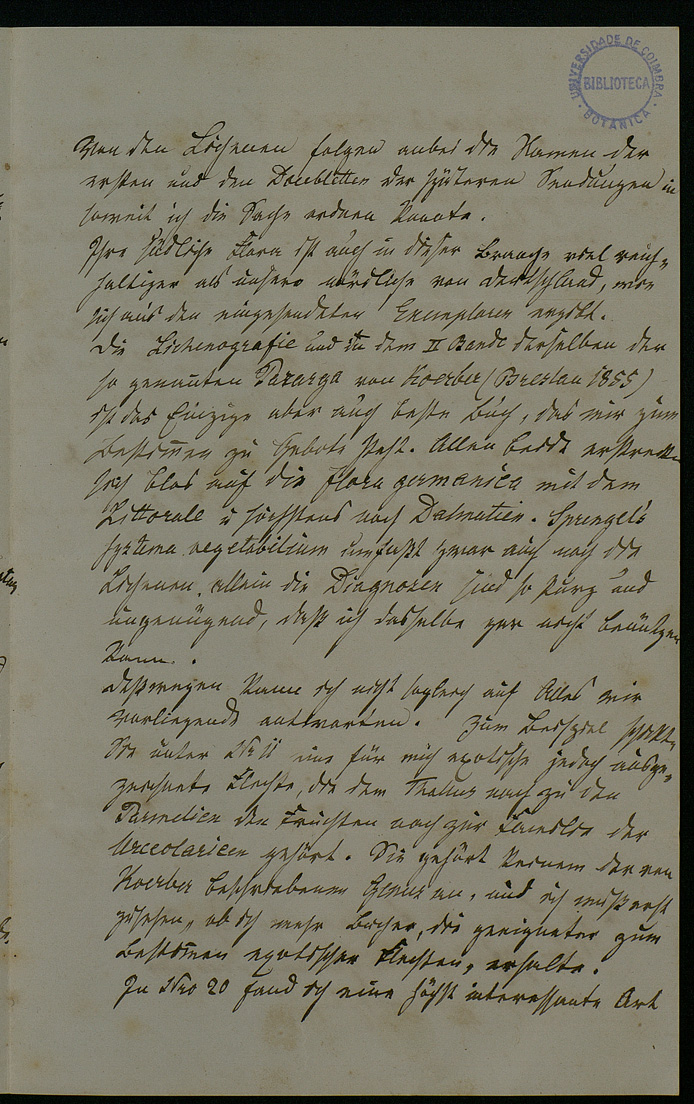 UNIVERSIDADE DE COIMBRA
BIBLIOTECA
BOTANICA
Von den Lichenen folgen anbei die Namen der
ersten und den Doubletten der späteren Sendungen in
soweit ich die Sache ordnen konnte.
Ihre südliche Flora ist auch in dieser Branche viel reich-
haltiger als unsere nördliche von Deutschland, wie
sich aus den eingesendeten Exemplaren ergibt.
Die Lichenografie und in dem II Bande derselben der
so genannten Pararga von Koerber (Breslau 1855)
ist das Einzige aber auch beste Buch, das mir zum
Bestimen zu Gebote steht. Allein beide erstrecken
sich blos auf die flora germanica mit dem
Littorale u höchstens noch Dalmatien. Sprengel's
systema vegetabilium umfaßt zwar auch noch die
Lichenen, allein die Diagnosen sind so kurz und
ungenügend, daß ich dasselbe gar nicht benützen
kann.
Deßwegen kann ich nicht sogleich auf Alles mir
Vorliegende antworten. Zum Beispiel schikt-
Sie unter Nr 11 eine für mich exotische jedoch ausge-
zeichnete Flechte, die dem Thallus nach zu den
Parmelien den Früchten nach zur Familie der
Urceolarieen gehört. Sie gehört keinem der von
Koerber beschriebenen Genus an, und ich muß erst
zusehen, ob ich mehr Bücher, die geeigneter zum
Bestimen exotischer Flechten, erhalte.
In Nro 20 fand ich eine höchst interessante Art